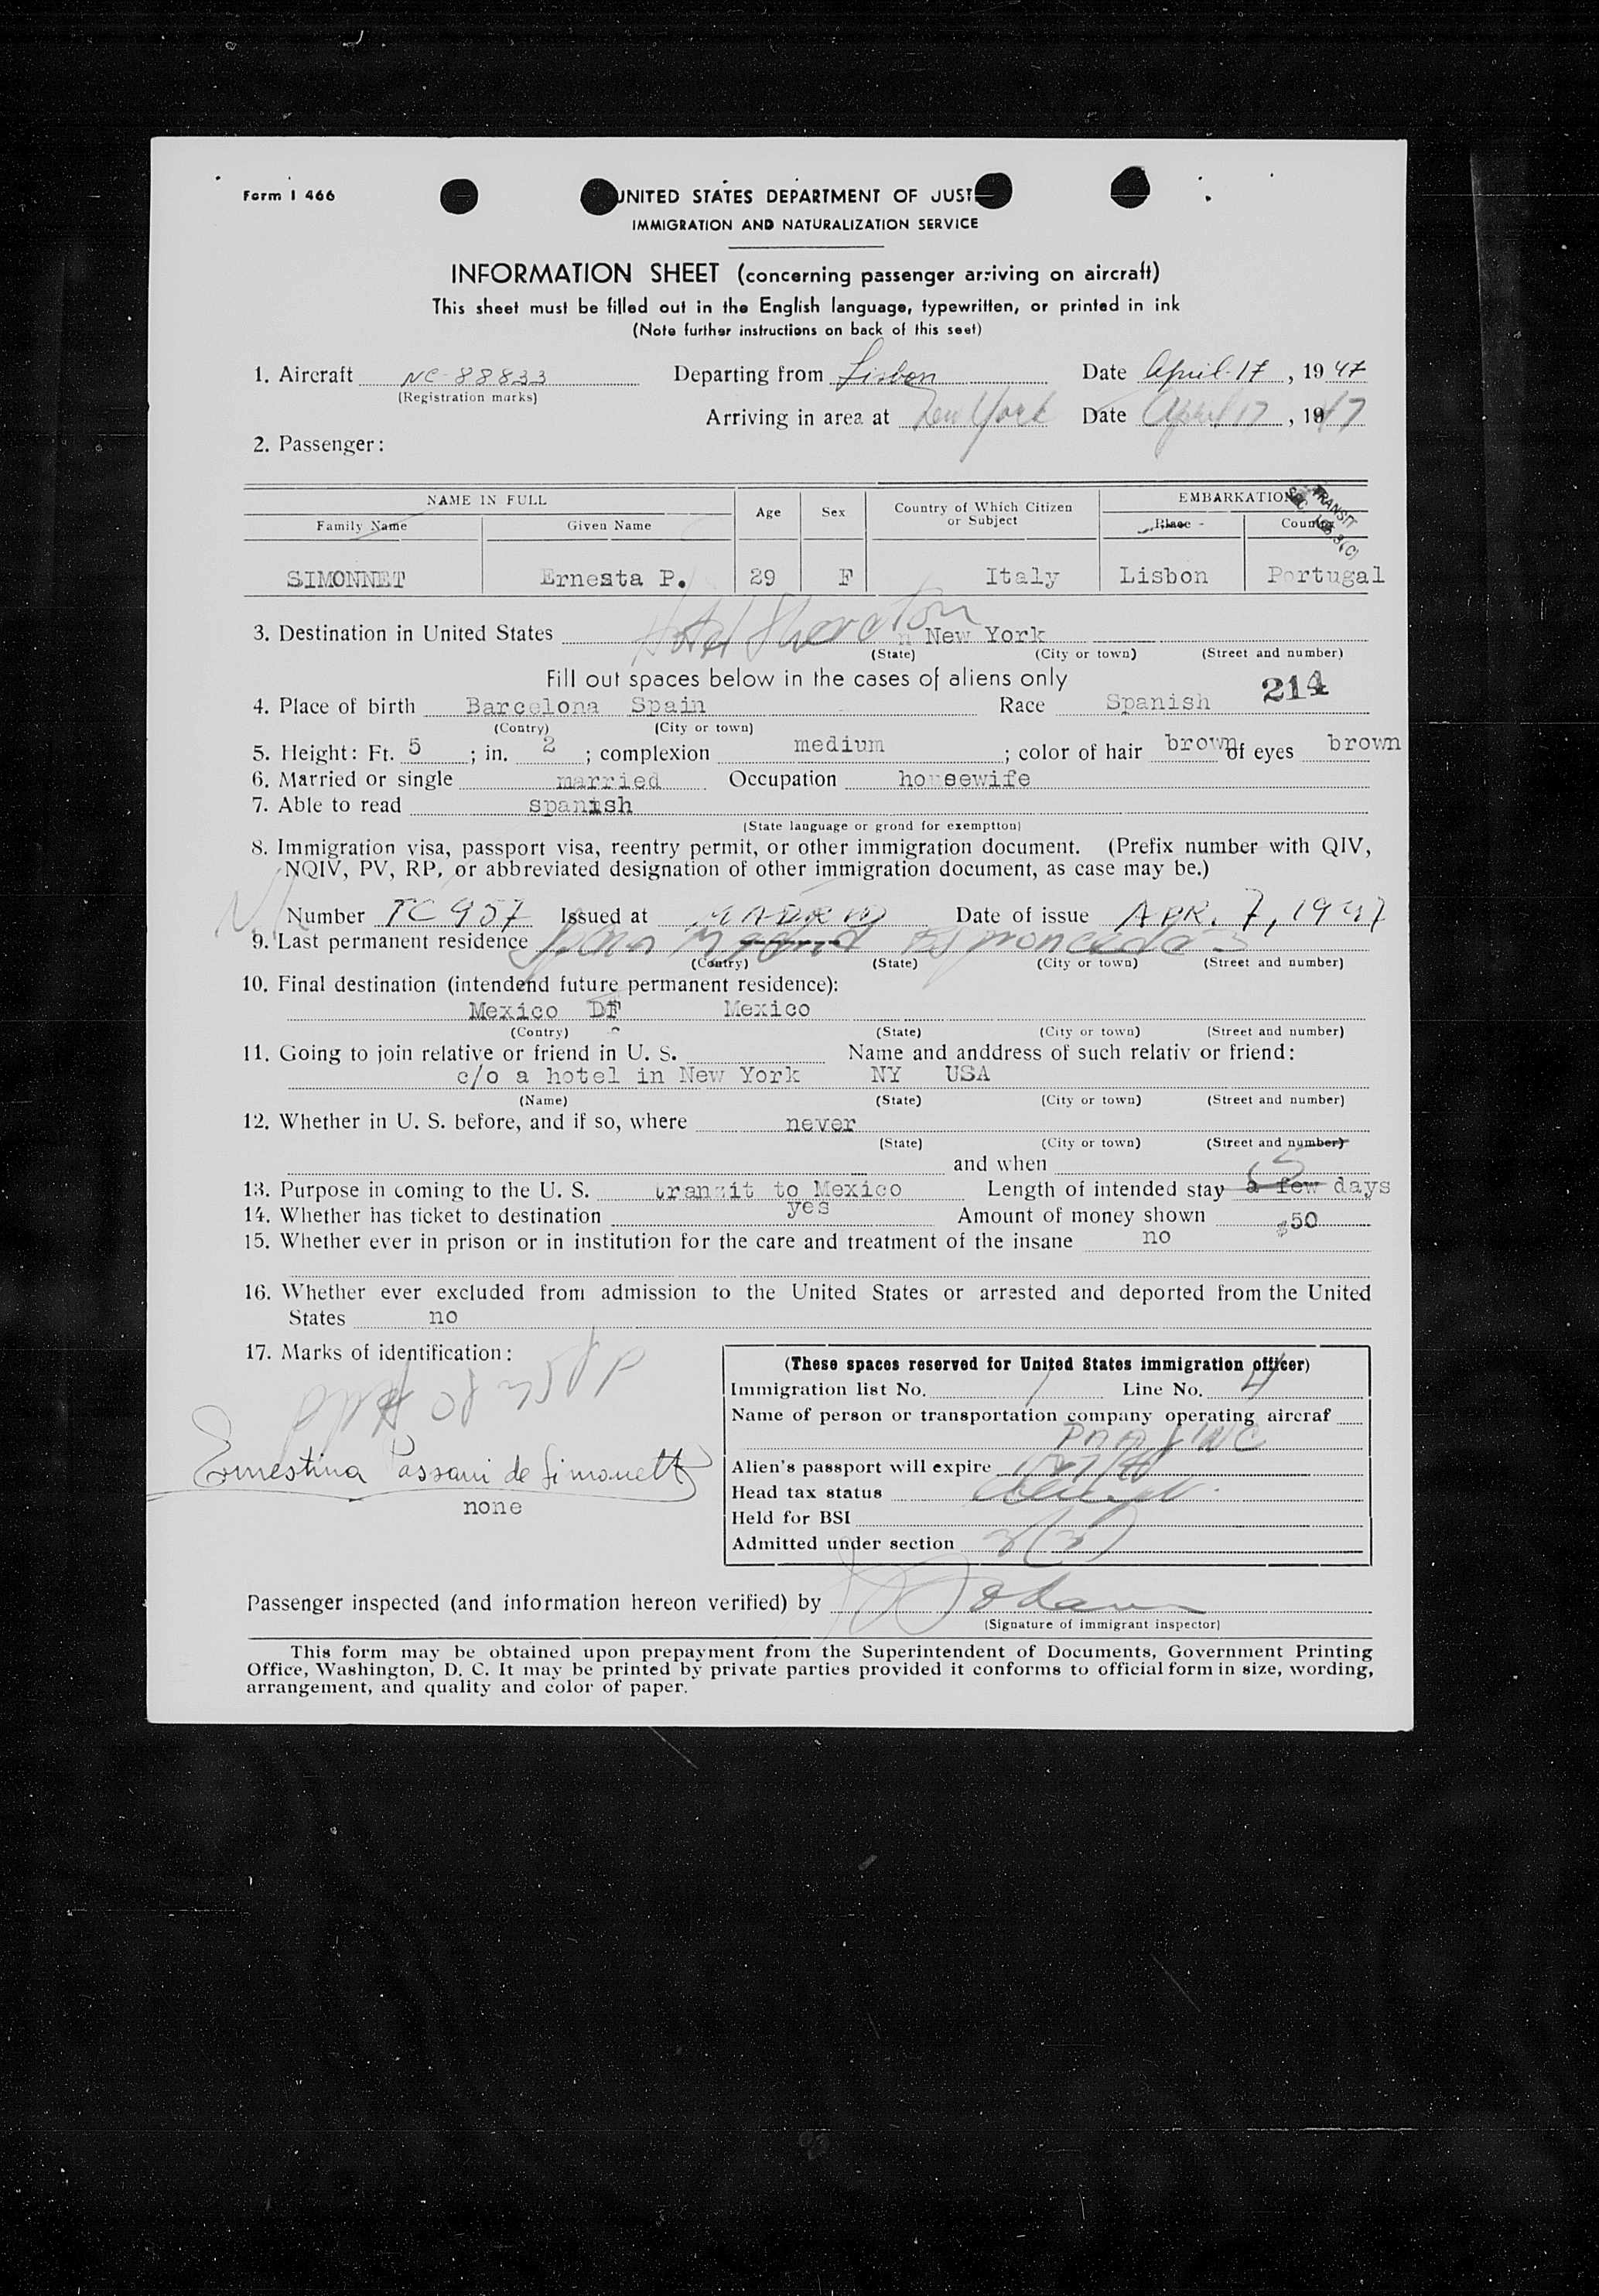 Form I 466
UNITED STATES DEPARTMENT OF JUST
IMMIGRATION AND NATURALIZATION SERVICE
INFORMATION SHEET (concerning passenger arriving on aircraft)
This sheet must be filled out in the English language, typewritten, or printed in ink
(Note further instructions on back of this seet)
1. Aircraft NC-88833 Departing from Lisbon Date April 17, 1947
(Registration marks)
Arriving in area at New York Date April 17, 1947
2. Passenger:
NAME IN FULL Age Sex Country of Which Citizen or Subject EMBARKATION
Family Name Given Name Place Country
TRANSIT
SEC. 3(C)
SIMONNET Ernesta P. 29 F Italy Lisbon Portugal
3. Destination in United States Hotel Sheraton New York
(State) (City or town) (Street and number)
Fill out spaces below in the cases of aliens only
214
4. Place of birth Barcelona Spain Race Spanish
(Contry) (City or town)
5. Height: Ft. 5; in. 2; complexion medium; color of hair brown of eyes brown
6. Married or single married Occupation housewife
7. Able to read spanish
(State language or grond for exemptton)
8. Immigration visa, passport visa, reentry permit, or other immigration document. (Prefix number with QIV,
NQIV, PV, RP, or abbreviated designation of other immigration document, as case may be.)
Number TC 957 Issued at MADRID Date of issue APR. 7, 1947
9. Last permanent residence Spain Madrid
(Contry) (State) (City or town) (Street and number)
10. Final destination (intendend future permanent residence):
Mexico DF Mexico
(Contry) (State) (City or town) (Street and number)
11. Going to join relative or friend in U. S. Name and anddress of such relativ or friend:
c/o a hotel in New York NY USA
(Name) (State) (City or town) (Street and number)
12. Whether in U. S. before, and if so, where never
(State) (City or town) (Street and number)
and when
13. Purpose in coming to the U. S. transit to Mexico Length of intended stay 5 a few days
14. Whether has ticket to destination yes Amount of money shown $50
15. Whether ever in prison or in institution for the care and treatment of the insane no
16. Whether ever excluded from admission to the United States or arrested and deported from the United
States no
17. Marks of identification:
Ernestina Passani de Simonett
none
(These spaces reserved for United States immigration officer)
Immigration list No. 1 Line No. 4
Name of person or transportation company operating aircraf
PAA INC
Alien's passport will expire
Head tax status
Held for BSI
Admitted under section 3(3)
Passenger inspected (and information hereon verified) by
(Signature of immigrant inspector)
This form may be obtained upon prepayment from the Superintendent of Documents, Government Printing
Office, Washington, D. C. It may be printed by private parties provided it conforms to official form in size, wording,
arrangement, and quality and color of paper.